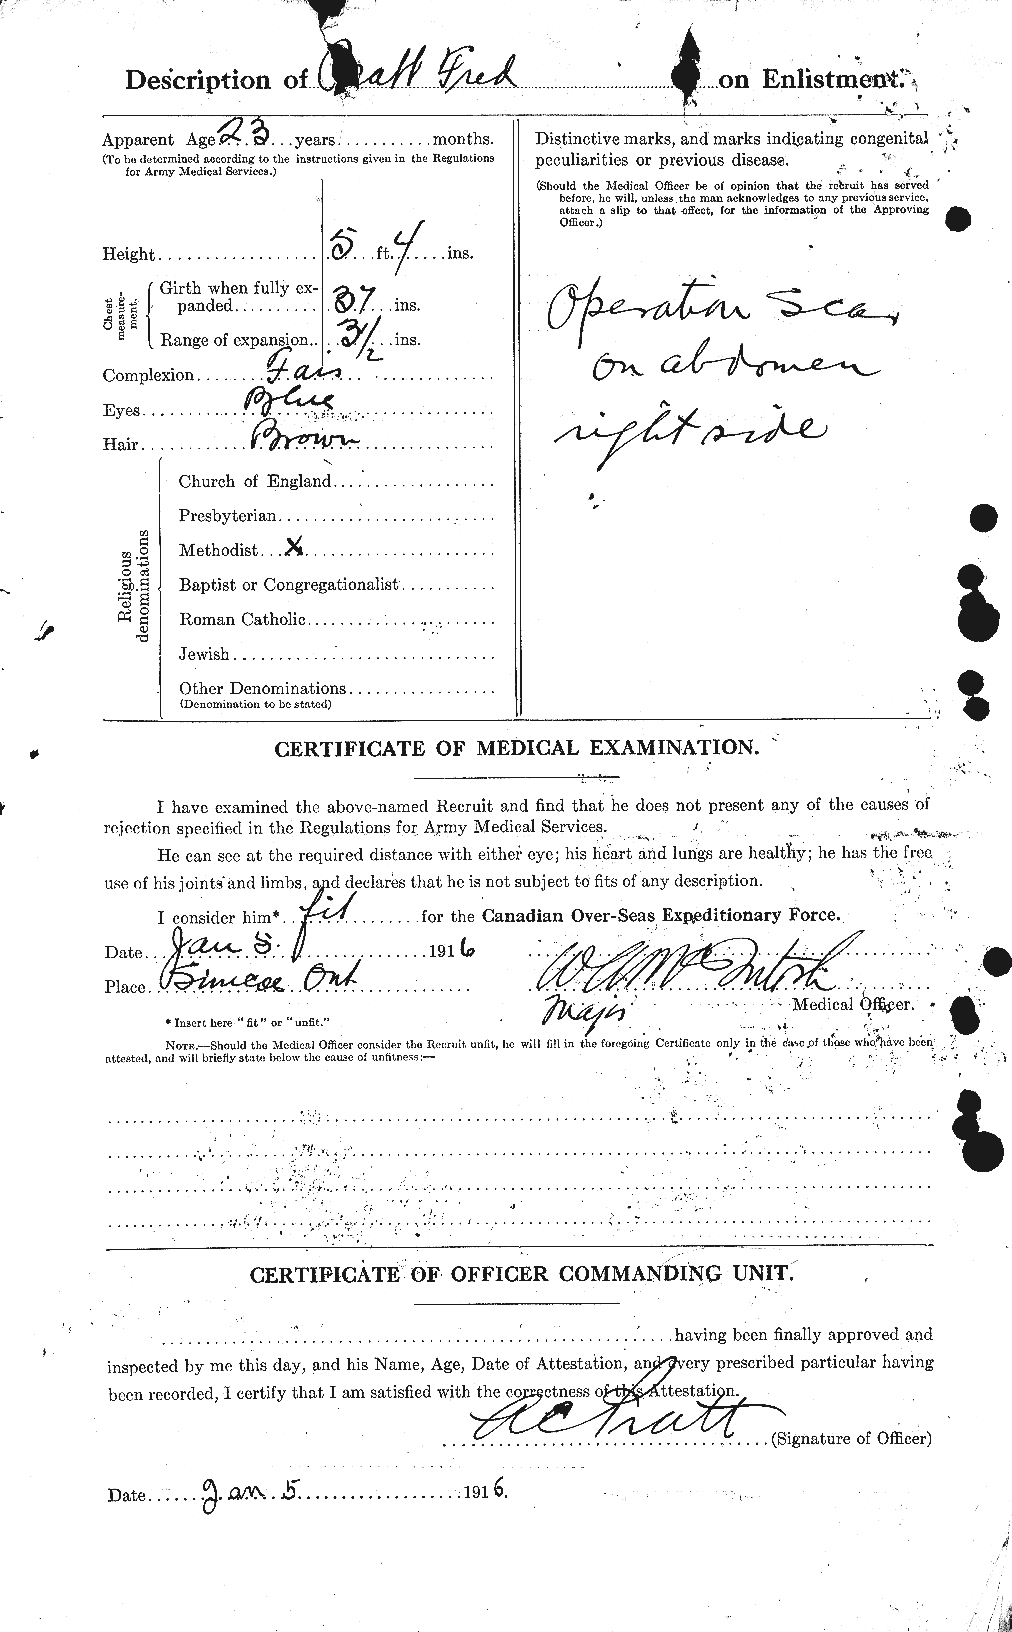 Description of Pratt Fred on Enlistment.
Apparent Age 23 years months.
(To be determined according to the instructions given in the Regulations
for Army Medical Services.)
Height 5 ft. 4 ins.
Chest measurement.
Girth when fully ex-
panded 37 ins.
Range of expansion 3 1/2 ins.
Complexion Fair
Eyes Blue
Hair Brown
Religious denominations
Church of England
Presbyterian
Methodist X
Baptist or Congregationalist
Roman Catholic
Jewish
Other Denominations
(Denomination to be stated)
Distinctive marks, and marks indicating congenital
peculiarities or previous disease.
(Should the Medical Officer be of opinion that the recruit has served
before, he will, unless the man acknowledges to any previous service,
attach a slip to that effect, for the information of the Approving
Officer.)
Operation Scar
on abdomen
right side
CERTIFICATE OF MEDICAL EXAMINATION.
I have examined the above-named Recruit and find that he does not present any of the causes of
rejection specified in the Regulations for Army Medical Services.
He can see at the required distance with either eye; his heart and lungs are healthy; he has the free
use of his joints and limbs, and declares that he is not subject to fits of any description.
I consider him* fit for the Canadian Over-Seas Expeditionary Force.
Date Jan 5 1916
Place Simcoe Ont
W A McIntosh
Major
Medical Officer.
* Insert here "fit" or "unfit."
NOTE.—Should the Medical Officer consider the Recruit unfit, he will fill in the foregoing Certificate only in the case of those who have been
attested, and will briefly state below the cause of unfitness:—
CERTIFICATE OF OFFICER COMMANDING UNIT.
having been finally approved and
inspected by me this day, and his Name, Age, Date of Attestation, and every prescribed particular having
been recorded, I certify that I am satisfied with the correctness of this Attestation.
A C Pratt
(Signature of Officer)
Date Jan 5 1916.